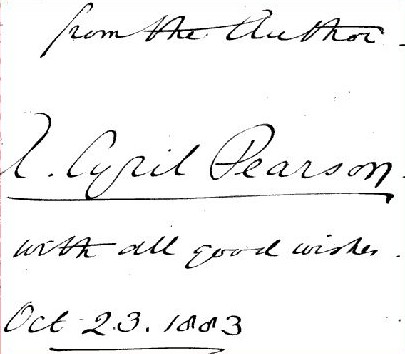 from the Author.
A. Cyril Pearson.
with all good wishes.
Oct 23. 1883